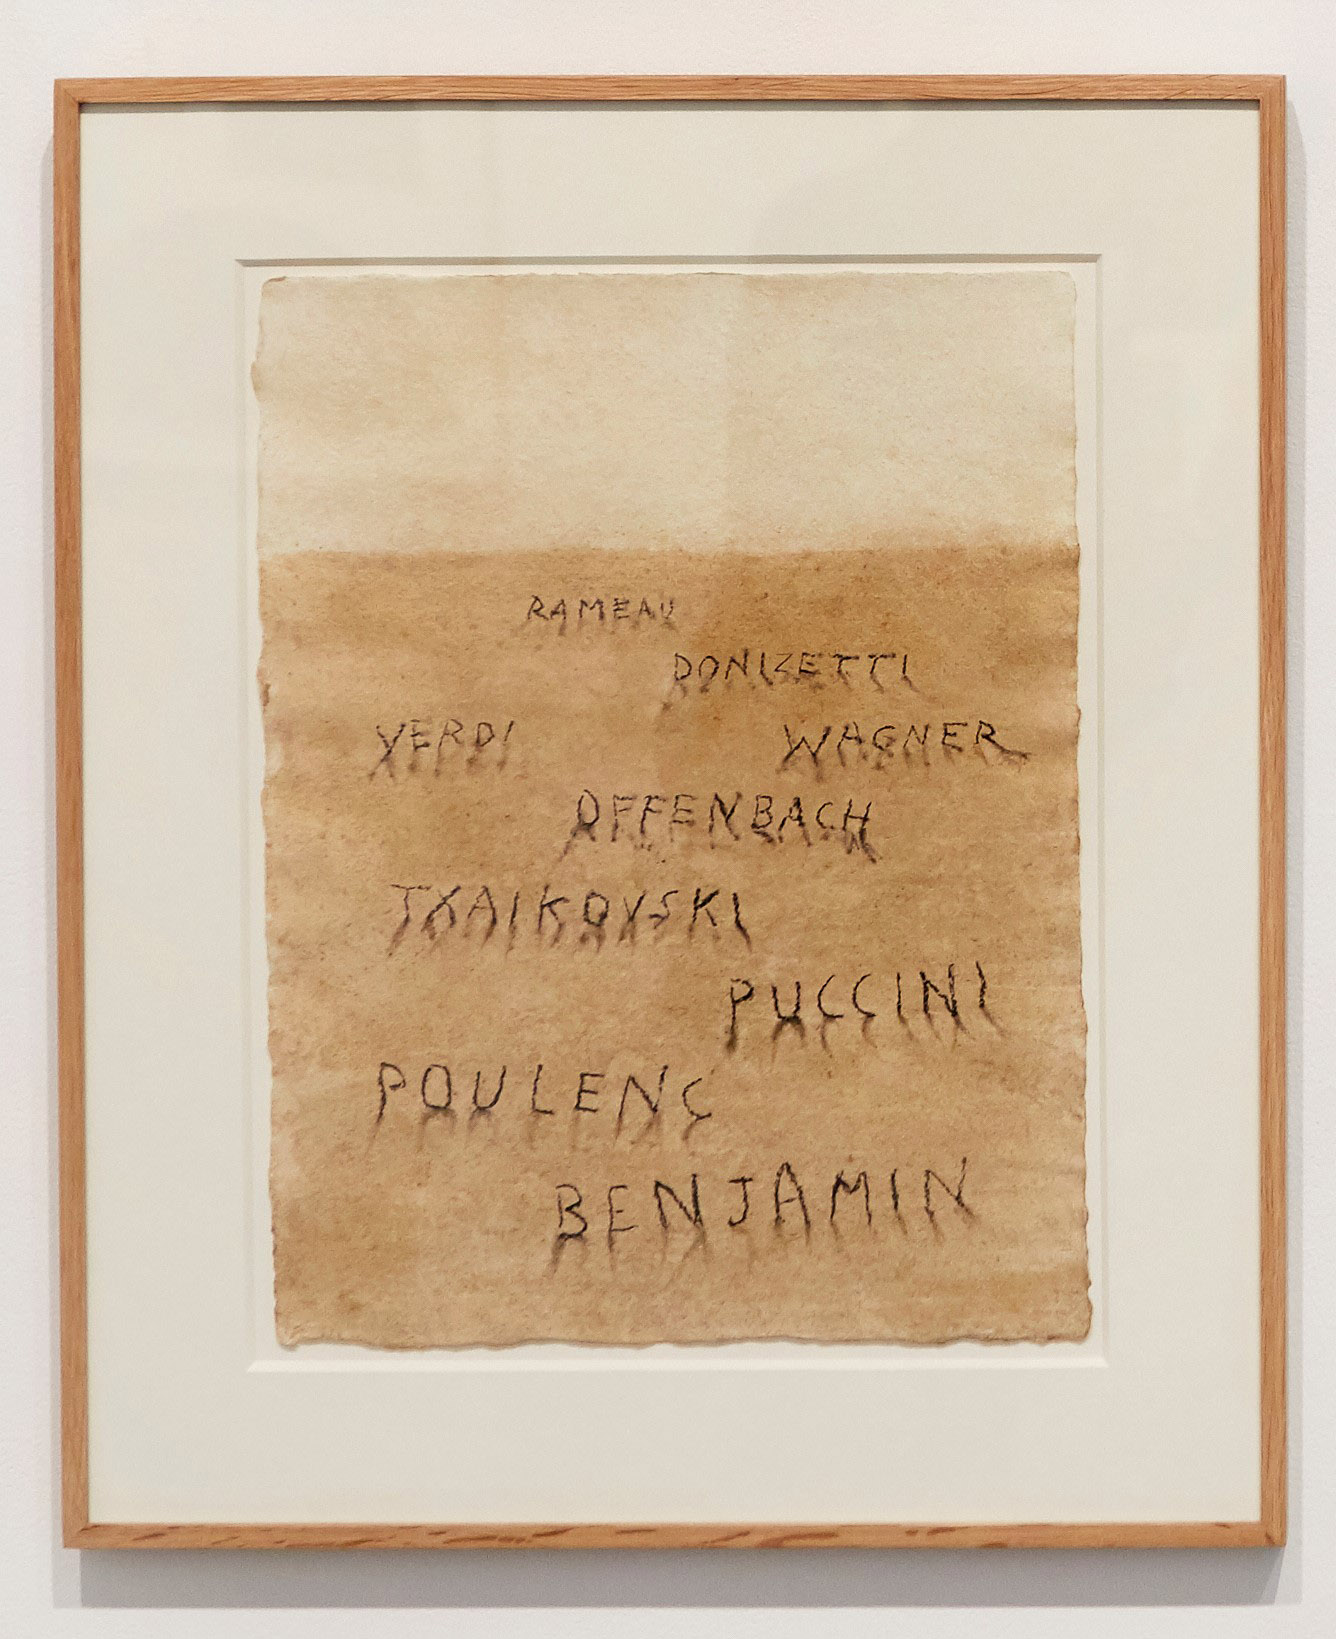 RAMEAU
DONIZETTI
VERDI WAGNER
OFFENBACH
TXAIKOVSKI
PUCCINI
POULENC
BENJAMIN